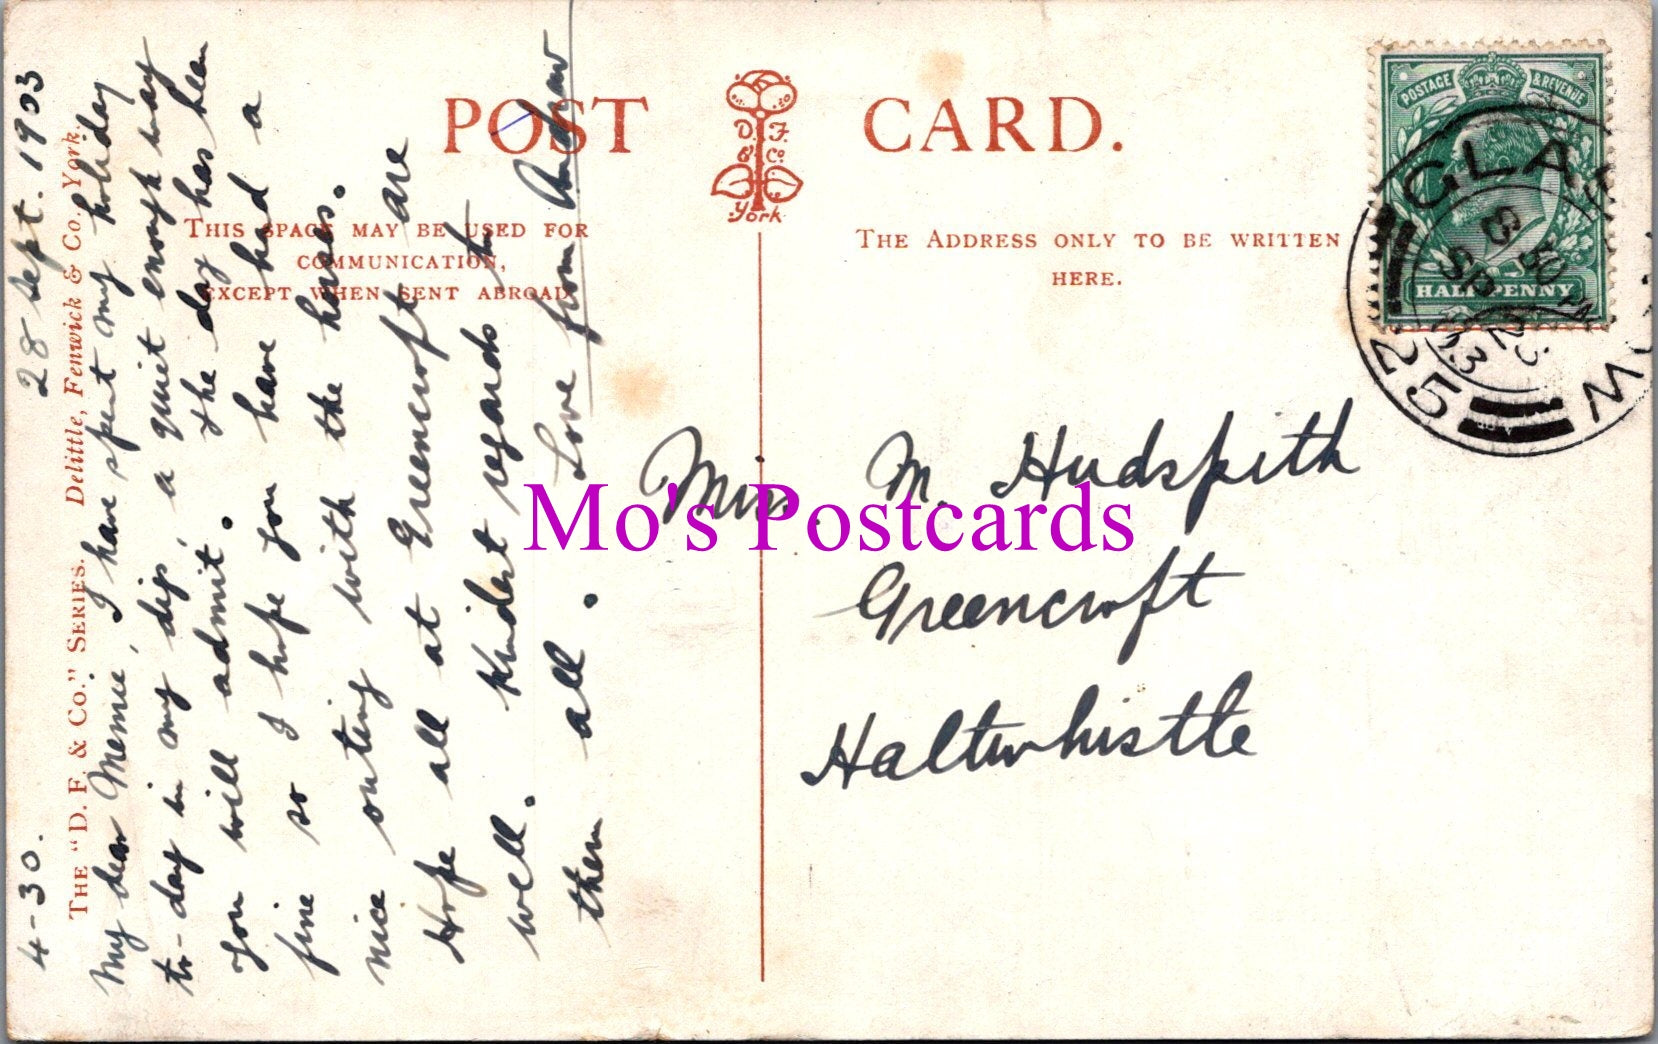 POST CARD.
D. F. & Co. York
THIS SPACE MAY BE USED FOR
COMMUNICATION,
EXCEPT WHEN SENT ABROAD
THE ADDRESS ONLY TO BE WRITTEN
HERE.
POSTAGE & REVENUE
HALFPENNY
GLASGOW
6 30 PM
SP 28
03
25
THE "D. F. & CO." SERIES. Delittle, Fenwick & Co., York.
4-30. 28 Sept. 1903
My dear Memie, I have spent my holiday
to-day in my dip, a quiet enough way
you will admit. The day has been
fine so I hope you have had a
nice outing with the horses.
Hope all at Greencroft are
well. Kindest regards to
them all. Love from Andrew
Mrs. M. Hudspith
Greencroft
Haltwhistle
Mo's Postcards